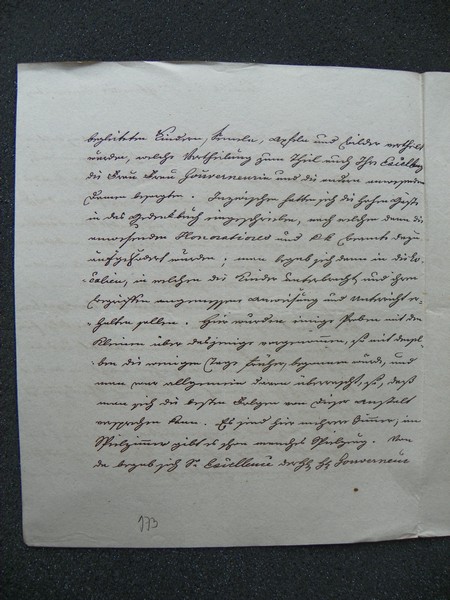 begleiteten Kindern, Semeln, Äpfeln und Bilder vertheilt
wurden, welche Vertheilung zum Theil auch Ihre Excellenz
die Frau Frau Gouverneurin und die andern anwesenden
Damen besorgten. Inzwischen hatten sich die hohen Gäste
in das Gedenkbuch eingeschrieben, nach welchen dann die
anwesenden Honoratiores und k.k. Beamte dazu
aufgefordert wurden; man begab sich dann in die Lo-
calien, in welchen die Kinder unterbracht und ihren
Begriffen angemessene Anweisung und Unterricht er-
halten sollen. Hier wurden einige Proben mit den
Kleinen über dasjenige vorgenommen, so mit densel-
ben die wenigen Tage früher begonnen wurde, und
man war allgemein davon überrascht, so, daß
man sich die besten Folgen von dieser Anstalt
versprechen kann. Es sind hier mehrere Zimmer, im
Spielzimmer gibt es schon manches Spielzeug. Von
da begab sich Se. Excellenz der Gouverneur
173